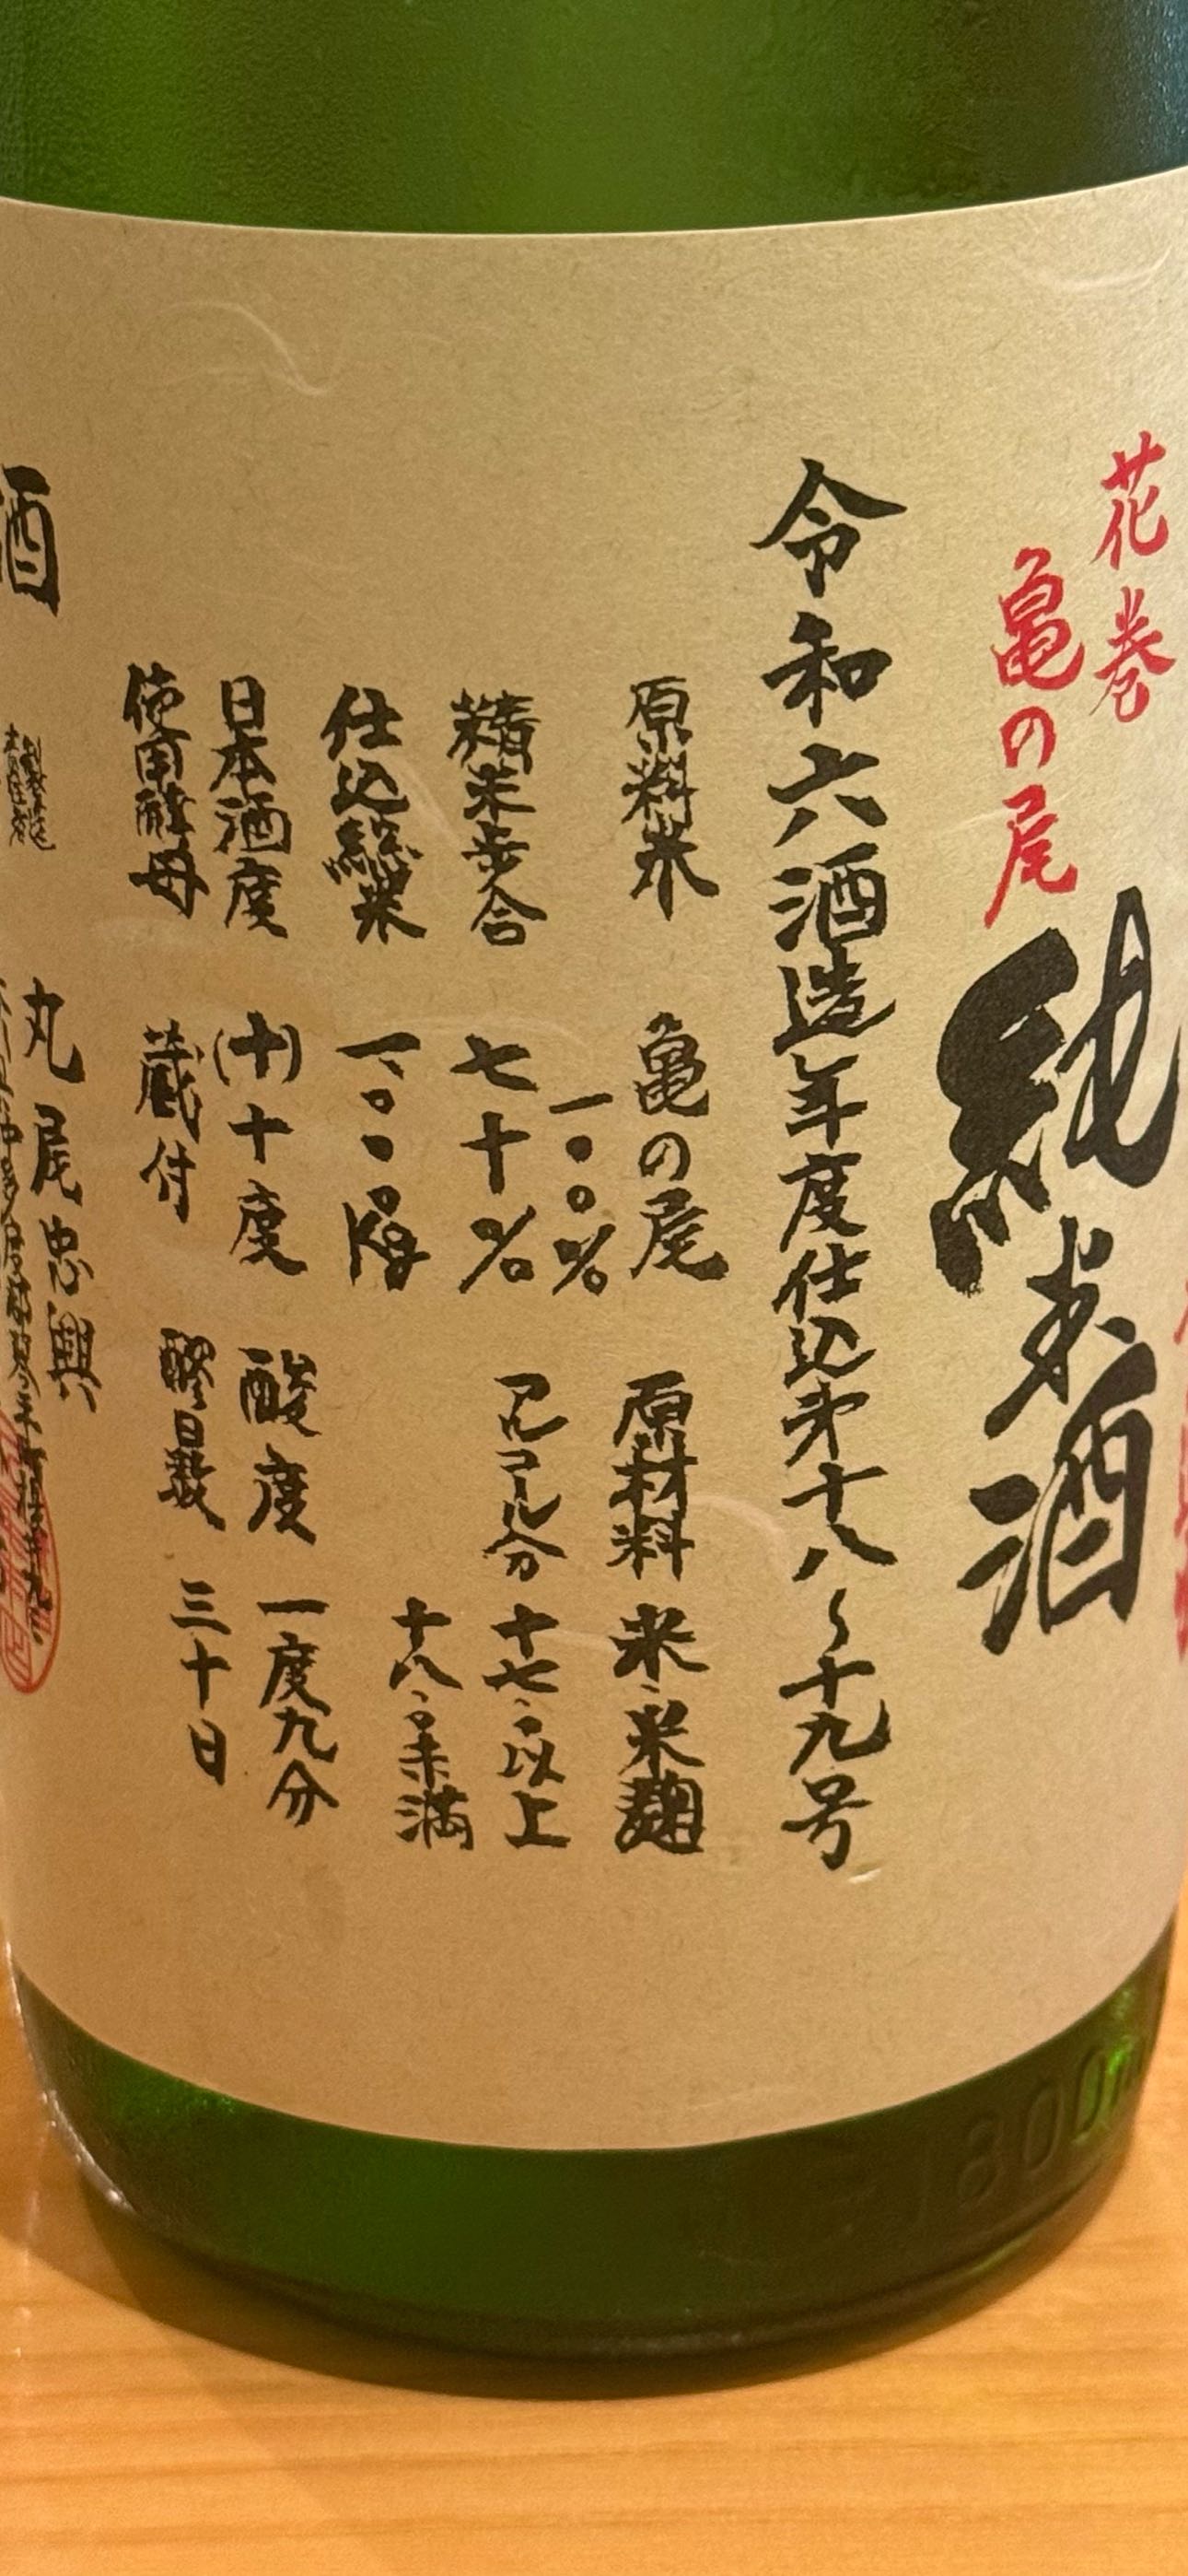 花巻
亀の尾
純米酒
令和六酒造年度仕込第十八〜十九号
原料米 亀の尾
一〇〇%
原材料 米・米麹
精米歩合 七十%
アルコール分 十七・〇以上
十八・〇未満
仕込総米 一、〇〇〇kg
日本酒度 (+)十度
酸度 一度九分
使用酵母 蔵付
醪日数 三十日
酒
製造
責任者
丸尾忠興
1800m